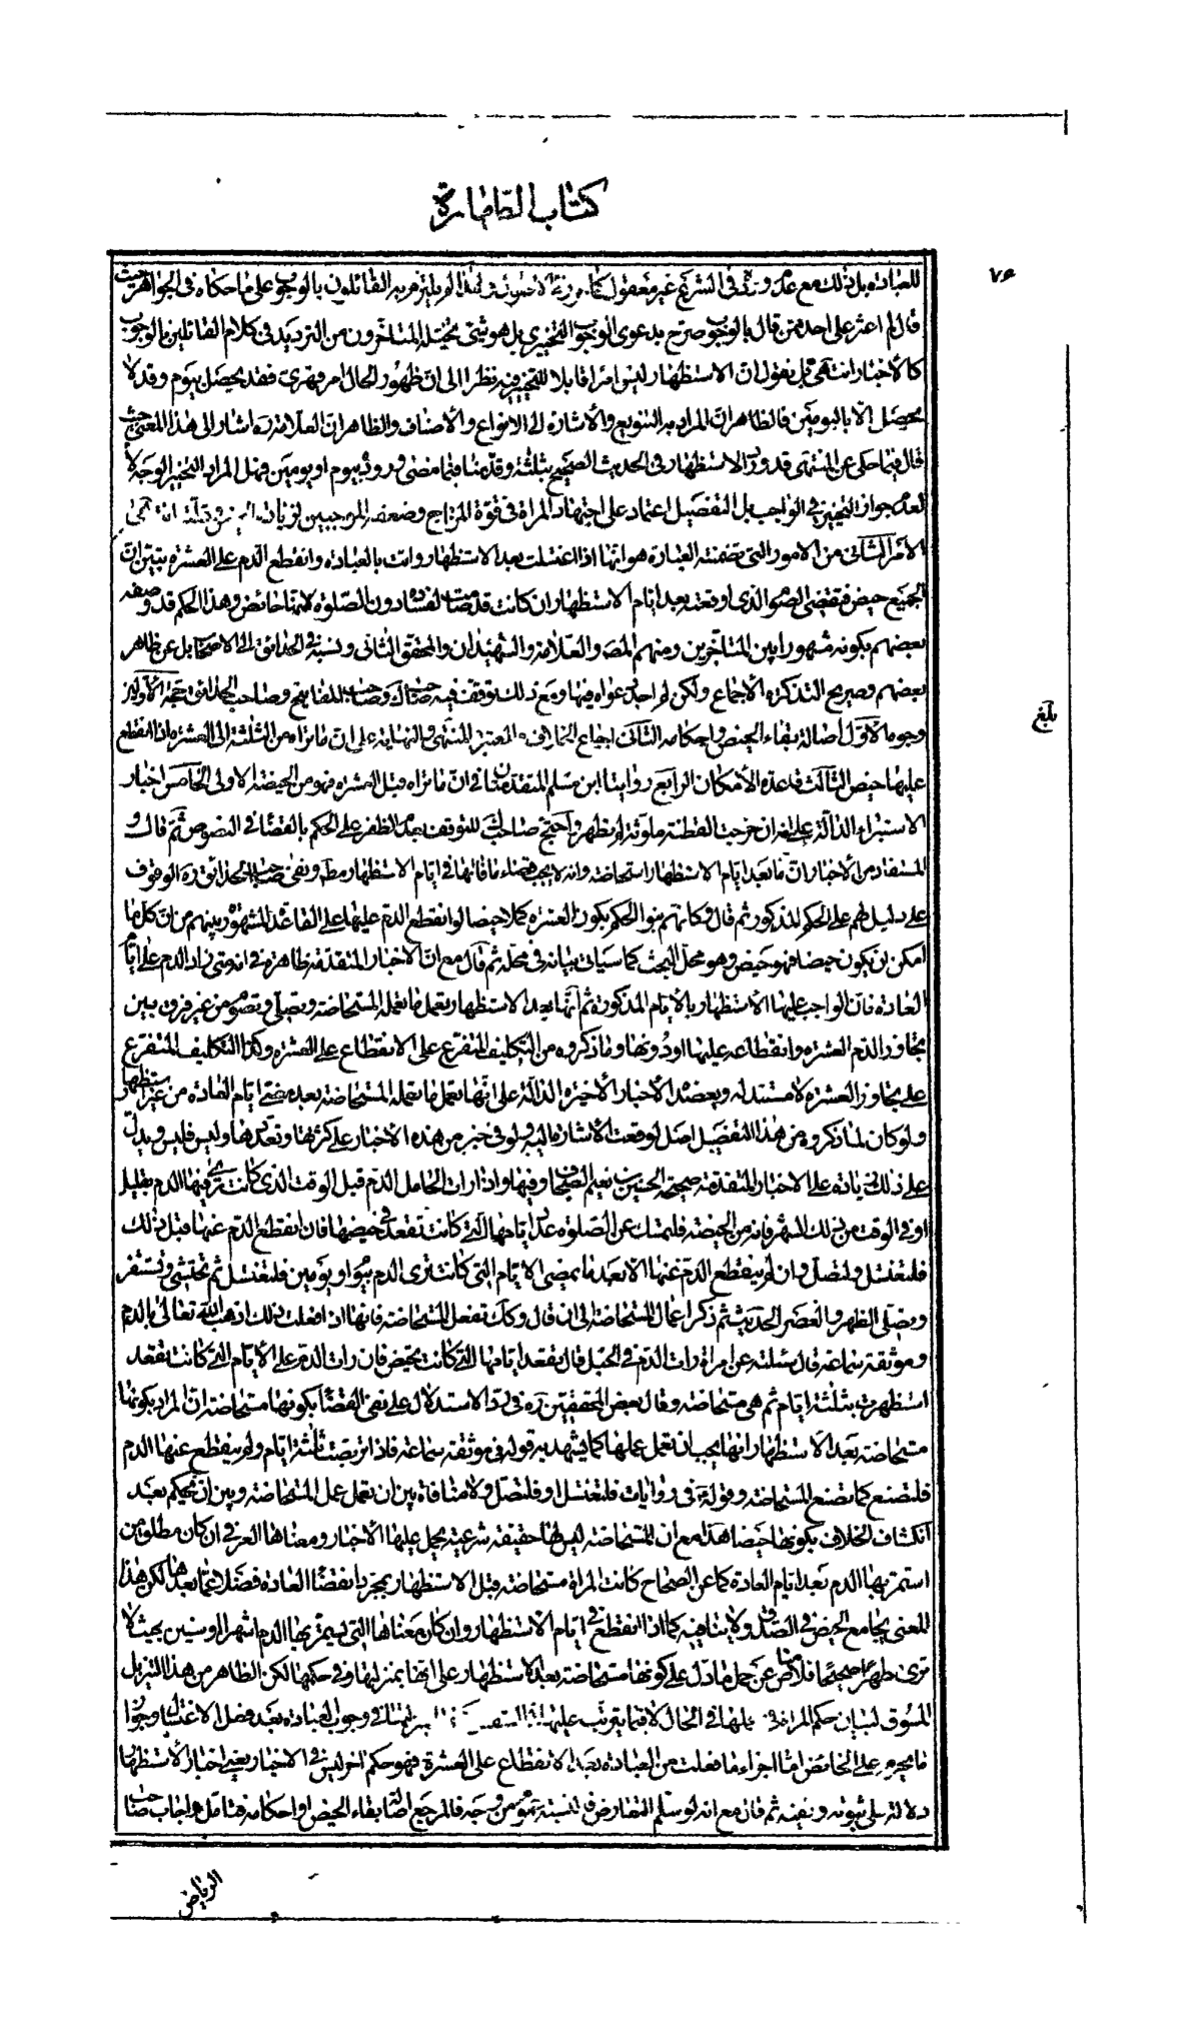 كتاب الطهارة
٧۶
للعباده بل ذلك مع عدم في الشرع غير معقول كما ولذا لم يلتزم به القائلون بالوجوب على ما حكاه في الجواهر حيث
قال لم اعثر على احد ممن قال بالوجوب صرح بدعوى الوجوب التخييري بل هو شئ تخيله المتاخرون من الترديد في كلام القائلين بالوجوب
كالأخبار انتهى بل نقول ان الاستظهار ليس امرا قابلا للتخيير فيه نظرا الى ان ظهور الحال امر قهري فقد يحصل بيوم وقد لا
يحصل الا باليومين فالظاهر ان المراد به التنويع والأشارة الى الانواع والأصناف والظاهر ان العلامة ره اشار الى هذا المعنى حيث
قال فيما حكى عن المنتهى قد ورد الاستظهار في الحديث الصحيح بثلثة وقد منا فيما مضى ورود بيوم او يومين فهل المراد التخيير الوجه لا
لعدم جواز التخيير في الواجب بل التفصيل اعتماد على اجتهاد المراة في قوة المزاج وضعفه الموجبين لزيادة الحيض وقلته انتهى
الأمر الثاني من الامور التي تضمنته العبارة هو انها اذا اغتسلت بعد الاستظهار واتت بالعبادة وانقطع الدم على العشرة تبين ان
الجميع حيض فتقضي الصوم الذي اوقعته بعد ايام الاستظهار ان كانت قد صامت لفساده دون الصلوة لانها حائض وهذا الحكم قد وصفه
بعضهم بكونه مشهورا بين المتاخرين ومنهم المصـ والعلامة والشهيدان والمحقق الثاني ونسبه في الحدائق الى الاصحاب بل عن ظاهر
بعضهم وصريح التذكرة الأجماع ولكن لم اجد دعواه فيها ومع ذلك توقف فيه صاحب ك وصاحب المفاتيح وصاحب الحدائق حجة الأولين
وجوه الأول اصالة بقاء الحيض واحكامه الثاني اجماع الخلاف والمعتبر والمنتهى والنهاية على ان ما تراه من الثلثة الى العشرة اذا انقطع
عليها حيض الثالث قاعدة الأمكان الرابع روايتا ابن مسلم المتقدمتان في ان ما تراه قبل العشرة فهو من الحيضة الاولى الخامس اخبار
الاستبراء الدالة على انه ان خرجت القطنة ملوثة لم تطهر واحتج صاحب ك للتوقف بعدم الظفر على الحكم بالقضاء في النصوص ثم قال و
المستفاد من الأخبار ان ما بعد ايام الاستظهار استحاضة وانه لا يجب قضاء ما فاتها في ايام الاستظهار مطـ ونفى صاحب الحدائق ره الوقوف
على دليل لهم على الحكم المذكور ثم قال وكانهم بنوا الحكم بكون العشرة كملا حيضا لو انقطع الدم عليها على القاعدة المشهورة بينهم من ان كل ما
امكن ان يكون حيضا فهو حيض وهو محل البحث كما سياتي بيانه في محله ثم قال مع ان الاخبار المتقدمة ظاهرة في انه متى زاد الدم على ايام
العادة فان الواجب عليها الاستظهار بالأيام المذكورة ثم انها بعد الاستظهار تعمل ما تعمله المستحاضة وتصلى وتصوم من غير فرق بين
تجاوز الدم العشرة وانقطاعه عليها او دونها وما ذكروه من التكليف المتفرع على الانقطاع على العشرة وكذا التكليف المتفرع
على تجاوز العشرة لا مستند له ويعضده الأخبار الأخيرة الدالة على انها تعمل ما تعمله المستحاضة بعد مضي ايام العادة من غير استظهار
ولو كان لما ذكروه من هذا التفصيل اصل لوقعت الأشارة اليه ولو في خبر من هذه الاخبار على كثرتها وتعددها وليس فليس ويدل
على ذلك زيادة على الاخبار المتقدمة صحيحة الحسين بن نعيم الصحاف وفيها واذا رات الحامل الدم قبل الوقت الذي كانت ترى فيها الدم بقليل
او في الوقت من ذلك الشهر فانه من الحيضة فلتمسك عن الصلوة عدد ايامها التي كانت تقعد في حيضها فان انقطع الدم عنها قبل ذلك
فلتغتسل ولتصل وان لم ينقطع الدم عنها الا بعد ما يمضى الايام التي كانت ترى الدم بيوم او يومين فلتغتسل ثم تحتشي وتستثفر
وتصلى الظهر والعصر الحديث ثم ذكر اعمال المستحاضة الى ان قال وكك تفعل المستحاضة فانها اذا فعلت ذلك اذهب الله تعالى بالدم
وموثقة سماعة قال سئلته عن امراة رات الدم في الحبل قال تقعد ايامها التي كانت تحيض فان رات الدم على الأيام التي كانت تقعد
استظهرت بثلثة ايام ثم هي مستحاضة وقال بعض المحققين ره في رد الاستدلال على نفى القضاء بكونها مستحاضة ان المراد بكونها
مستحاضة بعد الاستظهار انها يجب ان تعمل عملها كما يشهد به قوله في موثقة سماعة فاذا تربصت ثلثة ايام ولم ينقطع عنها الدم
فلتصنع كما تصنع المستحاضة وقوله في روايات فلتغتسل او فلتصل ولا منافاة بين ان تعمل عمل المستحاضة وبين ان يحكم بعد
انكشاف الخلاف بكونها حيضا هذا مع ان المستحاضة ليس لها حقيقة شرعية يحمل عليها الأخبار ومعناها العرفي ان كان مطلق من
استمر بها الدم بعد ايام العادة كما عن الصحاح كانت المراة مستحاضة قبل الاستظهار بمجرد انقضاء العادة فضلا عما بعدها لكن هذا
المعنى يجامع الحيض في الصدق ولا ينافيه كما اذا انقطع في ايام الاستظهار وان كان معناها التي يستمر بها الدم اشهرا وسنين بحيث لا
ترى طهرا صحيحا فلا مناص عن حمل ما دل على كونها مستحاضة بعد الاستظهار على انها بمنزلتها وفي حكمها لكن الظاهر من هذا التنزيل
المسوق لبيان حكم المراة في عملها في الحال لا فيما يترتب عليها في وجوب العبادة بعد فضل الاغتسال وجواز
ما يحرم على الحائض اما اجزاء ما فعلت من العبادة بعد الانقطاع على العشرة فهو حكم اخر ليس في الاخبار يعني اخبار الأستظهار
دلالة على ثبوته ونفيه ثم قال مع انه لو سلم التعارض فالنسبة عموم من وجه فالمرجع اصالة بقاء الحيض او احكامه فتامل واجاب صاحب
الرياض
بلغ